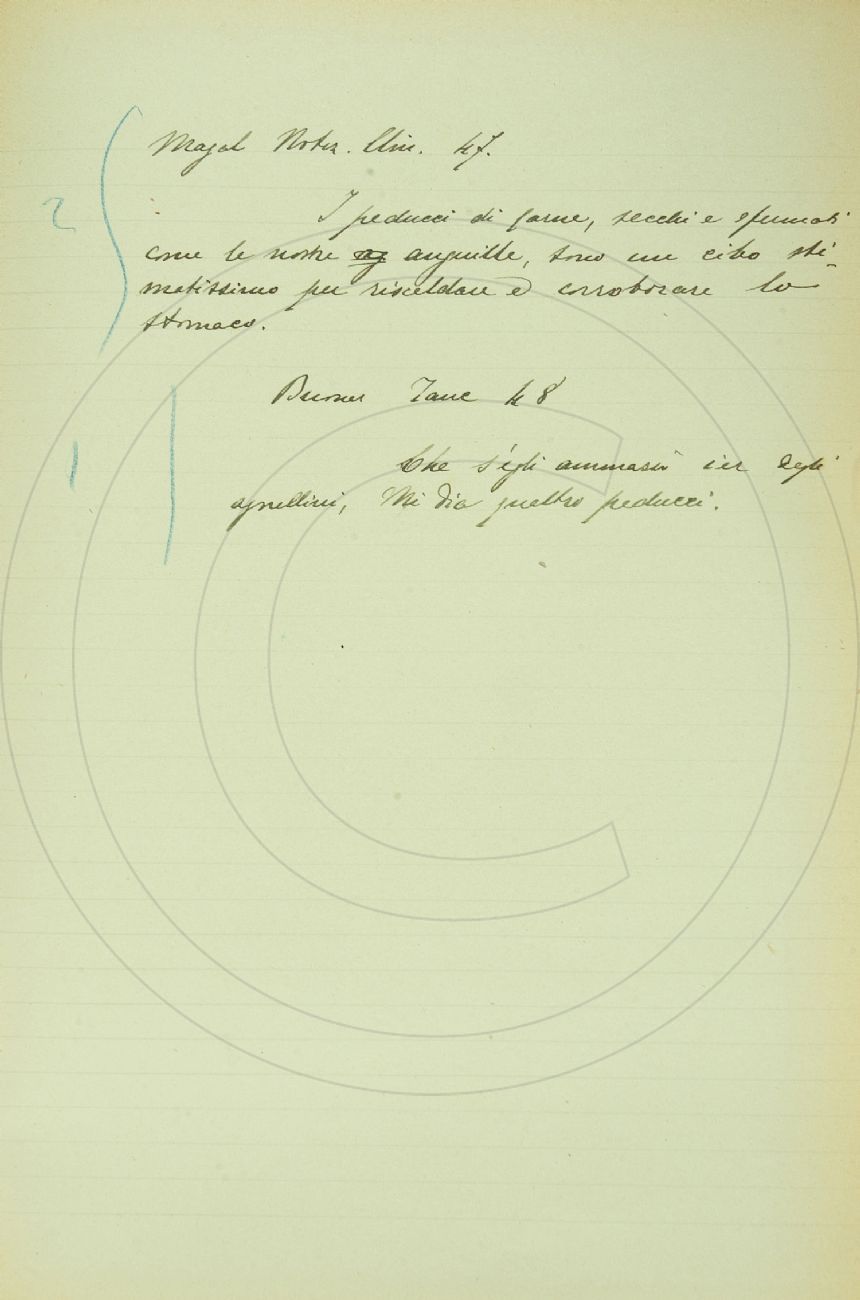 2
Magal Notiz. Clin. 47.
I peducci di
secchi e sfumati
come le nostre anguille, sono un cibo sti-
matissimo per riscaldare e corroborare lo
stomaco.
Buonar Tanc 48
1
Che s'egli ammazzò ier degli
agnellini, Mi dia quattro peducci.